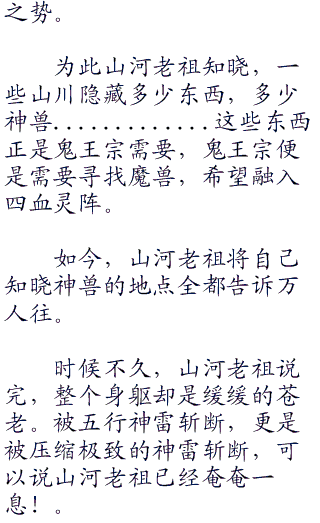 之势。
为此山河老祖知晓，一
些山川隐藏多少东西，多少
神兽.............这些东西
正是鬼王宗需要，鬼王宗便
是需要寻找魔兽，希望融入
四血灵阵。
如今，山河老祖将自己
知晓神兽的地点全都告诉万
人往。
时候不久，山河老祖说
完，整个身躯却是缓缓的苍
老。被五行神雷斩断，更是
被压缩极致的神雷斩断，可
以说山河老祖已经奄奄一
息！。